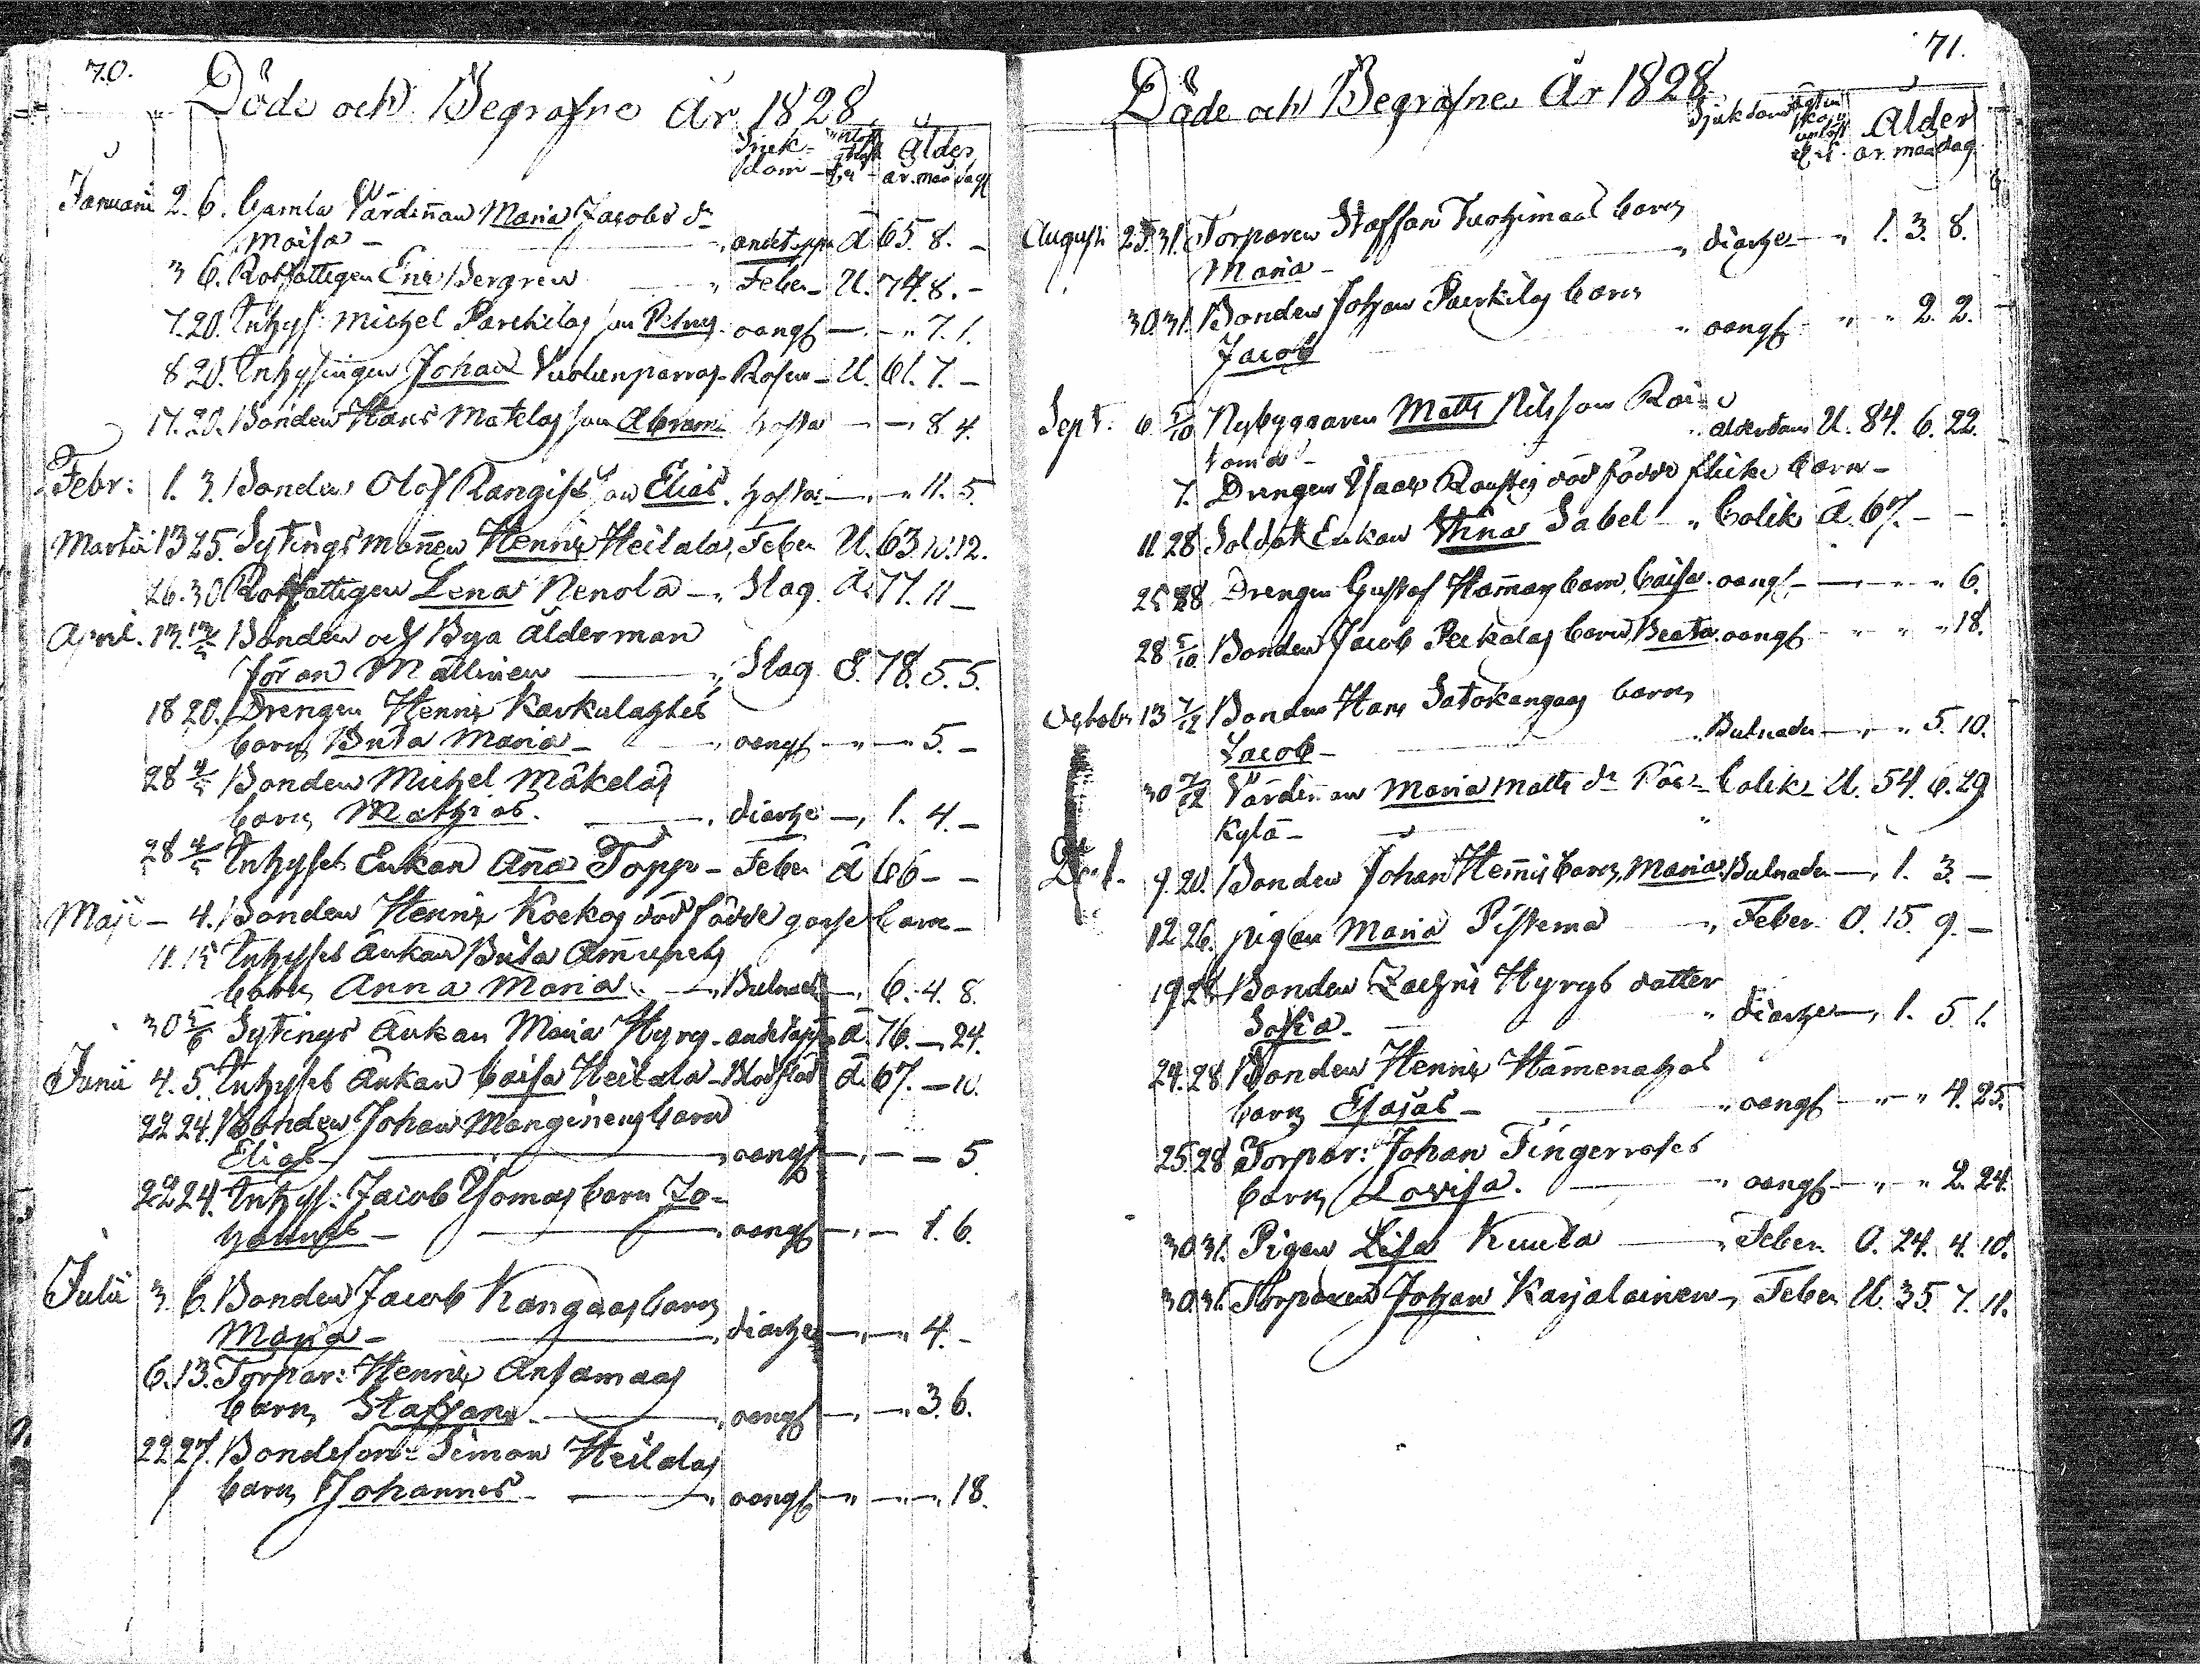 70.
Döde och Begrafne År 1828.
Sjuk- Ålder
dom år. mån dag
Januarii 2. 6. Gamla Värdinnan Maria Jacobs dr
Moisa – andetäppa Ä 65. 8. –
3 6. Rotfattigen Eric Bergren Feber – U. 74. 8. –
7. 20. Inhys: Michel Parckilas son Petrus oangf – – 7. 1.
8 20. Inhysingen Johan – Rosen – U. 61. 7. –
17. 20. Bonden Hans Matelas son Abram hosta – – 8 4.
Febr: 1. 3. Bonden Olof Rangits son Elias. hosta – – 11. 5.
Martii 13 25. Sytingsmannen Henric Heilala, Feber U. 63. 10. 12.
26. 30 Rotfattigen Lena Nenola – Slag. Ä. 77. 11 –
April. 13. Bonden och Bya Ålderman
Jöran Mallinen – Slag G. 78. 5. 5.
18 20. Drengen Henric Karkulashes
barn Brita Maria – oangf – – 5. –
28 4/5 Bonden Michel Mäkeläs
barn Mathias. – diarhe – 1. 4. –
28 4/5 Inhyses Enkan Anna Topp – Feber Ä 66 – –
Maji – 4. Bonden Henric Koekos död födde gosse barn –
11. 15 Inhyses Änkan Brita
barn Anna Maria. – Bulnad – 6. 4. 8.
30 5/6 Sytings Änkan Maria Hyry – andetäppa Ä 76. – 24.
Junii 4. 5. Inhyses Änkan Caisa Heilala – Blodstör Ä. 67. – 10.
22 24. Bonden Johan Manginens barn
Elias – oangf – – 5.
22 24. Inhys: Jacob Ylomas barn Jo-
hannes – oangf – – 1. 6.
Julii 3. 6. Bonden Jacob Kangaas barn
Maria – diarhe – – 4. –
6. 13. Torpar: Henric Ansamaas
barn Staffan – oangf – – 3. 6.
22 27. Bondeson: Simon Heilalas
barn Johannes – oangf – – 18.
71.
Döde och Begrafne År 1828
Sjukdom Ålder
år. mån dag
Augusti 25. 31. Torparen Staffan barn
Maria – diarhe – 1. 3. 8.
30. 31. Bonden Johan Parkilas barn
Jacob oangf 2. 2.
Sept. 6 5/10 Nybyggaren Matts Nilsson
Ålderdom U. 84. 6. 22.
7. Drengen Isaac död födde flicke barn –
11 28 Soldat Enkan Stina Sabel – Colik Ä. 67. – –
25 28 Drengen Gustaf Hammas barn Caisa. oangf – – 6.
28 5/10 Bonden Jacob Peckalas barn Beata oangf 18.
October 13 7/12 Bonden Hans Satokangas barn
Jacob – Bulnader – 5. 10.
30 7/12 Värdinnan Maria Matts dr Pås- Colik – U. 54. 6. 29
kylä –
Dec. 9. 20. Bonden Johan Hennis barn Maria. Bulnader – 1. 3. –
12 26. pigan Maria Pistema – Feber O. 15. 9. –
19 26 Bonden Zachris Hyrys dotter
Sofia – diarhe – 1. 5. 1.
24. 28 Bonden Henric
barn Esajas – oangf – 4. 25.
25 28 Torpar: Johan Fingerroses
barn Lovisa. – oangf – 2. 24.
30 31. Pigan Lisa Kuula – Feber O. 24. 4. 10.
30 31. Torparen Johan Karjalainen – Feber U. 35. 7. 11.